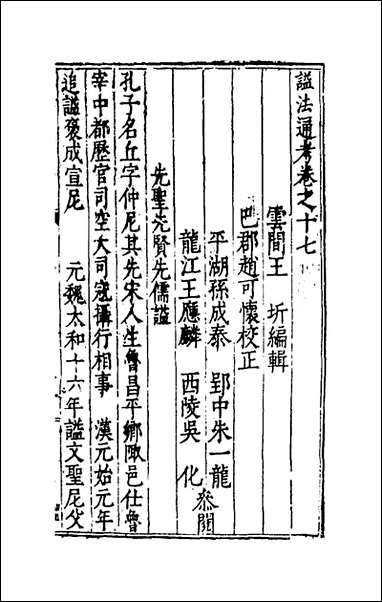 謚法通考卷之十七
雲間王　圻編輯
巴郡趙可懷校正
平湖孫成泰　郢中朱一龍
龍江王應麟　西陵吳　化　叅閱
先聖先賢先儒謚
孔子名丘字仲尼其先宋人生魯昌平鄉陬邑仕魯
宰中都歷官司空大司寇攝行相事　漢元始元年
追謚褒成宣尼　元魏太和十六年謚文聖尼父